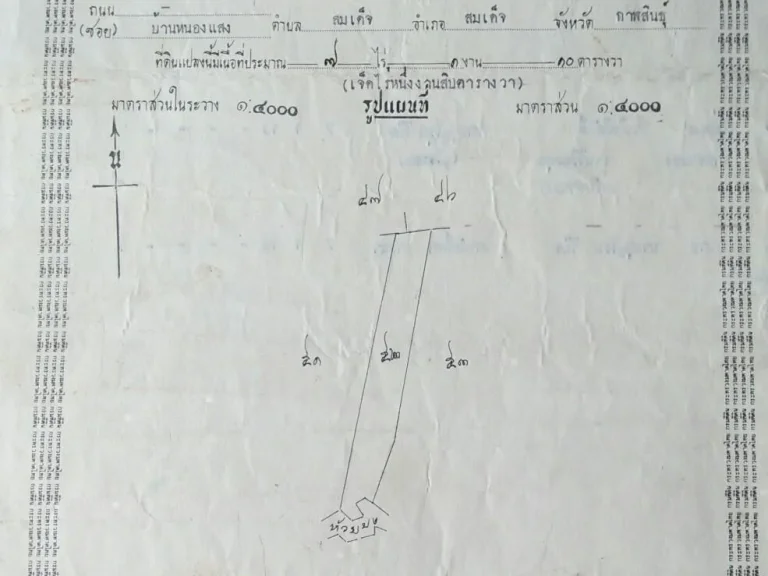 ถนน – ตำบล สมเด็จ อำเภอ สมเด็จ จังหวัด กาฬสินธุ์
(ซอย) บ้านหนองแสง
ที่ดินแปลงนี้มีเนื้อที่ประมาณ ๗ ไร่ ๑ งาน ๑๐ ตารางวา
(เจ็ดไร่หนึ่งงานสิบตารางวา)
มาตราส่วนในระวาง ๑:๔๐๐๐ รูปแผนที่ มาตราส่วน ๑:๔๐๐๐
น
๔๗ ๔๖
๕๑ ๕๒ ๕๓